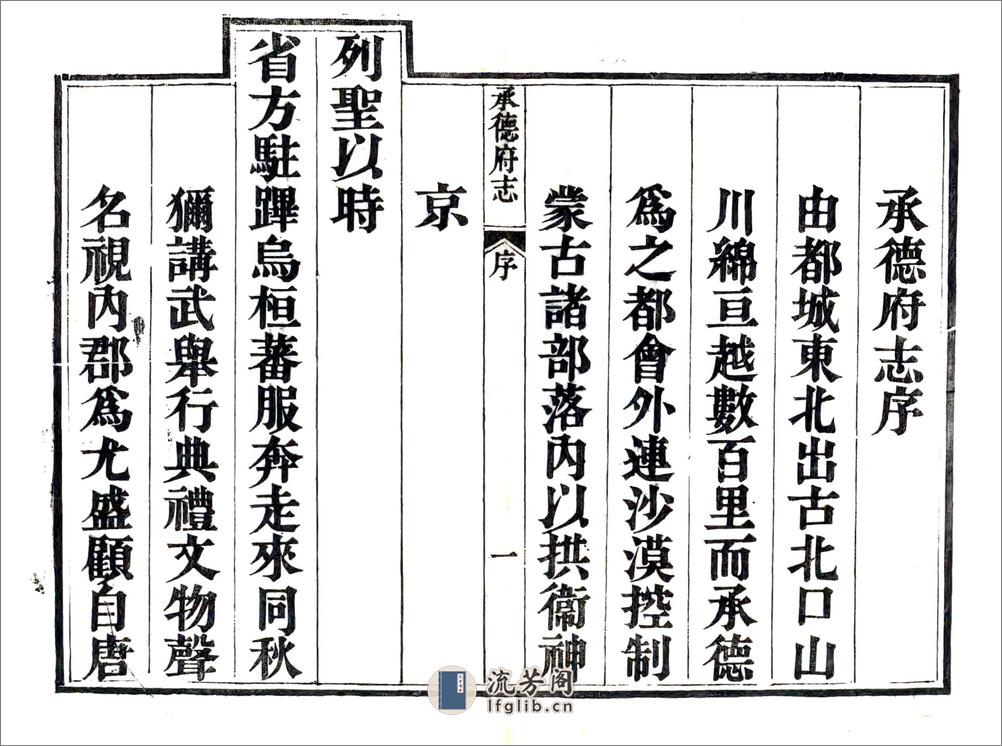 承德府志序
由都城東北出古北口山
川綿亘越數百里而承德
爲之都會外連沙漠控制
蒙古諸部落內以拱衞神
京
承德府志
序
一
列聖以時
省方駐蹕烏桓蕃服奔走來同秋
獮講武舉行典禮文物聲
名視內郡爲尤盛顧自唐
流芳阁
lfglib.cn